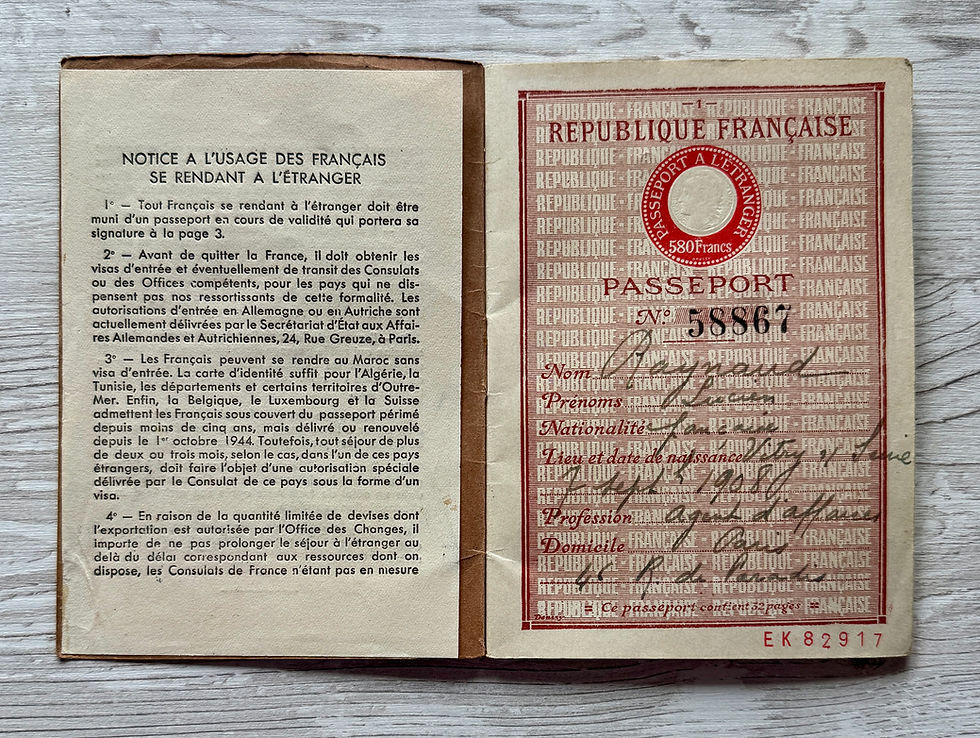 NOTICE A L'USAGE DES FRANÇAIS
SE RENDANT A L'ÉTRANGER
1° — Tout Français se rendant à l'étranger doit être
muni d'un passeport en cours de validité qui portera sa
signature à la page 3.
2° — Avant de quitter la France, il doit obtenir les
visas d'entrée et éventuellement de transit des Consulats
ou des Offices compétents, pour les pays qui ne dis-
pensent pas nos ressortissants de cette formalité. Les
autorisations d'entrée en Allemagne ou en Autriche sont
actuellement délivrées par le Secrétariat d'État aux Affai-
res Allemandes et Autrichiennes, 24, Rue Greuze, à Paris.
3° — Les Français peuvent se rendre au Maroc sans
visa d'entrée. La carte d'identité suffit pour l'Algérie, la
Tunisie, les départements et certains territoires d'Outre-
Mer. Enfin, la Belgique, le Luxembourg et la Suisse
admettent les Français sous couvert du passeport périmé
depuis moins de cinq ans, mais délivré ou renouvelé
depuis le 1er octobre 1944. Toutefois, tout séjour de plus
de deux ou trois mois, selon le cas, dans l'un de ces pays
étrangers, doit faire l'objet d'une autorisation spéciale
délivrée par le Consulat de ce pays sous la forme d'un
visa.
4° — En raison de la quantité limitée de devises dont
l'exportation est autorisée par l'Office des Changes, il
importe de ne pas prolonger le séjour à l'étranger au
delà du délai correspondant aux ressources dont on
dispose, les Consulats de France n'étant pas en mesure
— 1 —
REPUBLIQUE FRANÇAISE
PASSEPORT A L'ETRANGER
580 Francs
PASSEPORT
N° 58867
Nom Raynaud
Prénoms Lucien
Nationalité française
Lieu et date de naissance Vitry s/ Seine
7 sept 1908
Profession agent d'affaires
Domicile Paris
46 R. de Paradis
= Ce passeport contient 32 pages =
EK 82917